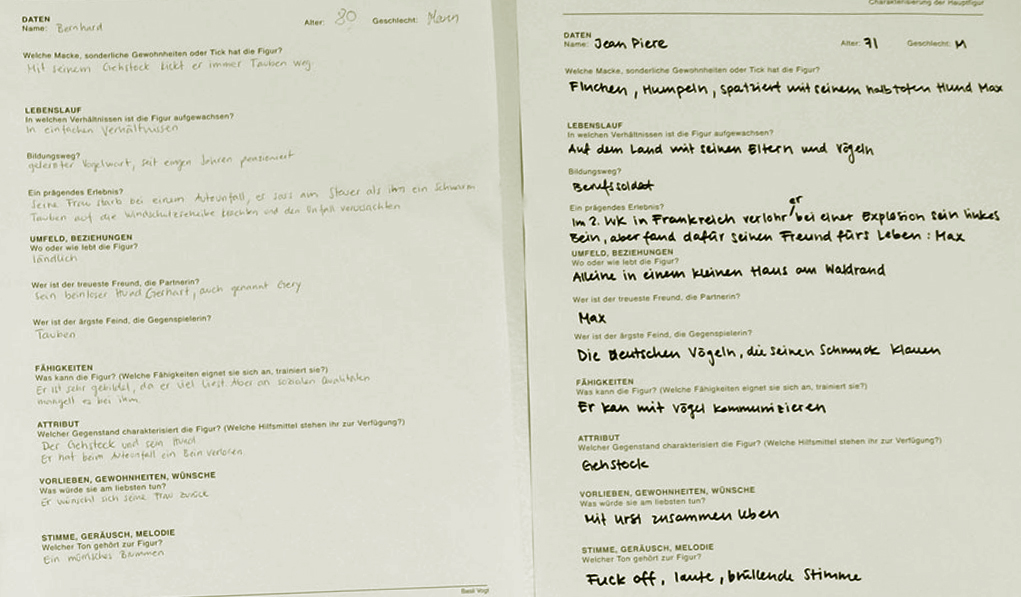 DATEN
Name: Bernhard Alter: 80 Geschlecht: Mann
Welche Macke, sonderliche Gewohnheiten oder Tick hat die Figur?
Mit seinem Gehstock kickt er immer Tauben weg.
LEBENSLAUF
In welchen Verhältnissen ist die Figur aufgewachsen?
In einfachen Verhältnissen
Bildungsweg?
gelernter Vogelwart, seit einigen Jahren pensioniert
Ein prägendes Erlebnis?
Seine Frau starb bei einem Autounfall, er sass am Steuer als ihm ein Schwarm
Tauben auf die Windschutzscheibe und den Unfall verursachten
UMFELD, BEZIEHUNGEN
Wo oder wie lebt die Figur?
ländlich
Wer ist der treueste Freund, die Partnerin?
Sein beinloser Hund Gerhart, auch genannt Gery
Wer ist der ärgste Feind, die Gegenspielerin?
Tauben
FÄHIGKEITEN
Was kann die Figur? (Welche Fähigkeiten eignet sie sich an, trainiert sie?)
Er ist sehr gebildet, da er viel liest. Aber an sozialen Qualitäten
mangelt es bei ihm.
ATTRIBUT
Welcher Gegenstand charakterisiert die Figur? (Welche Hilfsmittel stehen ihr zur Verfügung?)
Der Gehstock und sein Hund
Er hat beim Autounfall ein Bein verloren
VORLIEBEN, GEWOHNHEITEN, WÜNSCHE
Was würde sie am liebsten tun?
Er wünscht sich seine Frau zurück
STIMME, GERÄUSCH, MELODIE
Welcher Ton gehört zur Figur?
Ein mürrisches Brummen
Basil Vogt
Charakterisierung der Hauptfigur
DATEN
Name: Jean Piere Alter: 71 Geschlecht: M
Welche Macke, sonderliche Gewohnheiten oder Tick hat die Figur?
Fluchen, Humpeln, spatziert mit seinem halbtoten Hund Max
LEBENSLAUF
In welchen Verhältnissen ist die Figur aufgewachsen?
Auf dem Land mit seinen Eltern und Vögeln
Bildungsweg?
Berufssoldat
Ein prägendes Erlebnis?
Im 2. WK in Frankreich verlohr er bei einer Explosion sein linkes
Bein, aber fand dafür seinen Freund fürs Leben: Max
UMFELD, BEZIEHUNGEN
Wo oder wie lebt die Figur?
Alleine in einem kleinen Haus am Waldrand
Wer ist der treueste Freund, die Partnerin?
Max
Wer ist der ärgste Feind, die Gegenspielerin?
Die Deutschen Vögeln, die seinen Schmuck klauen
FÄHIGKEITEN
Was kann die Figur? (Welche Fähigkeiten eignet sie sich an, trainiert sie?)
Er kan mit Vögel kommunizieren
ATTRIBUT
Welcher Gegenstand charakterisiert die Figur? (Welche Hilfsmittel stehen ihr zur Verfügung?)
Gehstock
VORLIEBEN, GEWOHNHEITEN, WÜNSCHE
Was würde sie am liebsten tun?
Mit Ursi zusammen leben
STIMME, GERÄUSCH, MELODIE
Welcher Ton gehört zur Figur?
Fuck off, laute, brüllende Stimme